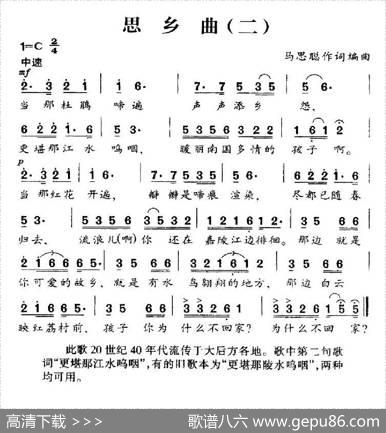 思乡曲(二)
1=C 2/4
中速
马思聪作词编曲
mf
2· 3 2 1 | 1 6· | 7· 7 5 3 5 | 5 6· |
当那杜鹃啼遍 声声添乡怨,
6 2 2 1· | 6 3· | 5 3 5 6 3 2 3 2 | 1 6 1 2 |
更堪那江水呜咽, 暖丽南国多情的孩子啊。
p
2· 3 2 1 | 1 6· | 7· 7 5 3 5 | 6 2 1 6 1 |
当那红花开遍, 瓣瓣是啼痕渲染, 尽都已随春
5 3· | 5 3 5 6 | 3 5 3 3 | 1 2 1 6 1 2 | 6 1 6 5 |
归去、 流浪儿(啊)你还在嘉陵江边徘徊。 那边就是
2 1 6 6 5· | 6 1 6 5 | 2 1 6 6 5 | 3 2 1 6 1 | 6 1 6 5 |
你可爱的故乡, 就是有水鸟翱翔的地方, 那边白云
2 1 6 6 5· | 6 5 2 1 | 1 2 1 6 2· | 1 2 1 6 5 | 5 |
映红荔村前, 孩子你为什么不回家? 为什么不回家?
此歌20世纪40年代流传于大后方各地。歌中第二句歌
词“更堪那江水呜咽”,有的旧歌本为“更堪那陵水呜咽”,两种
均可用。
高清下载 > >>>
歌谱八六 www.gepu86.com